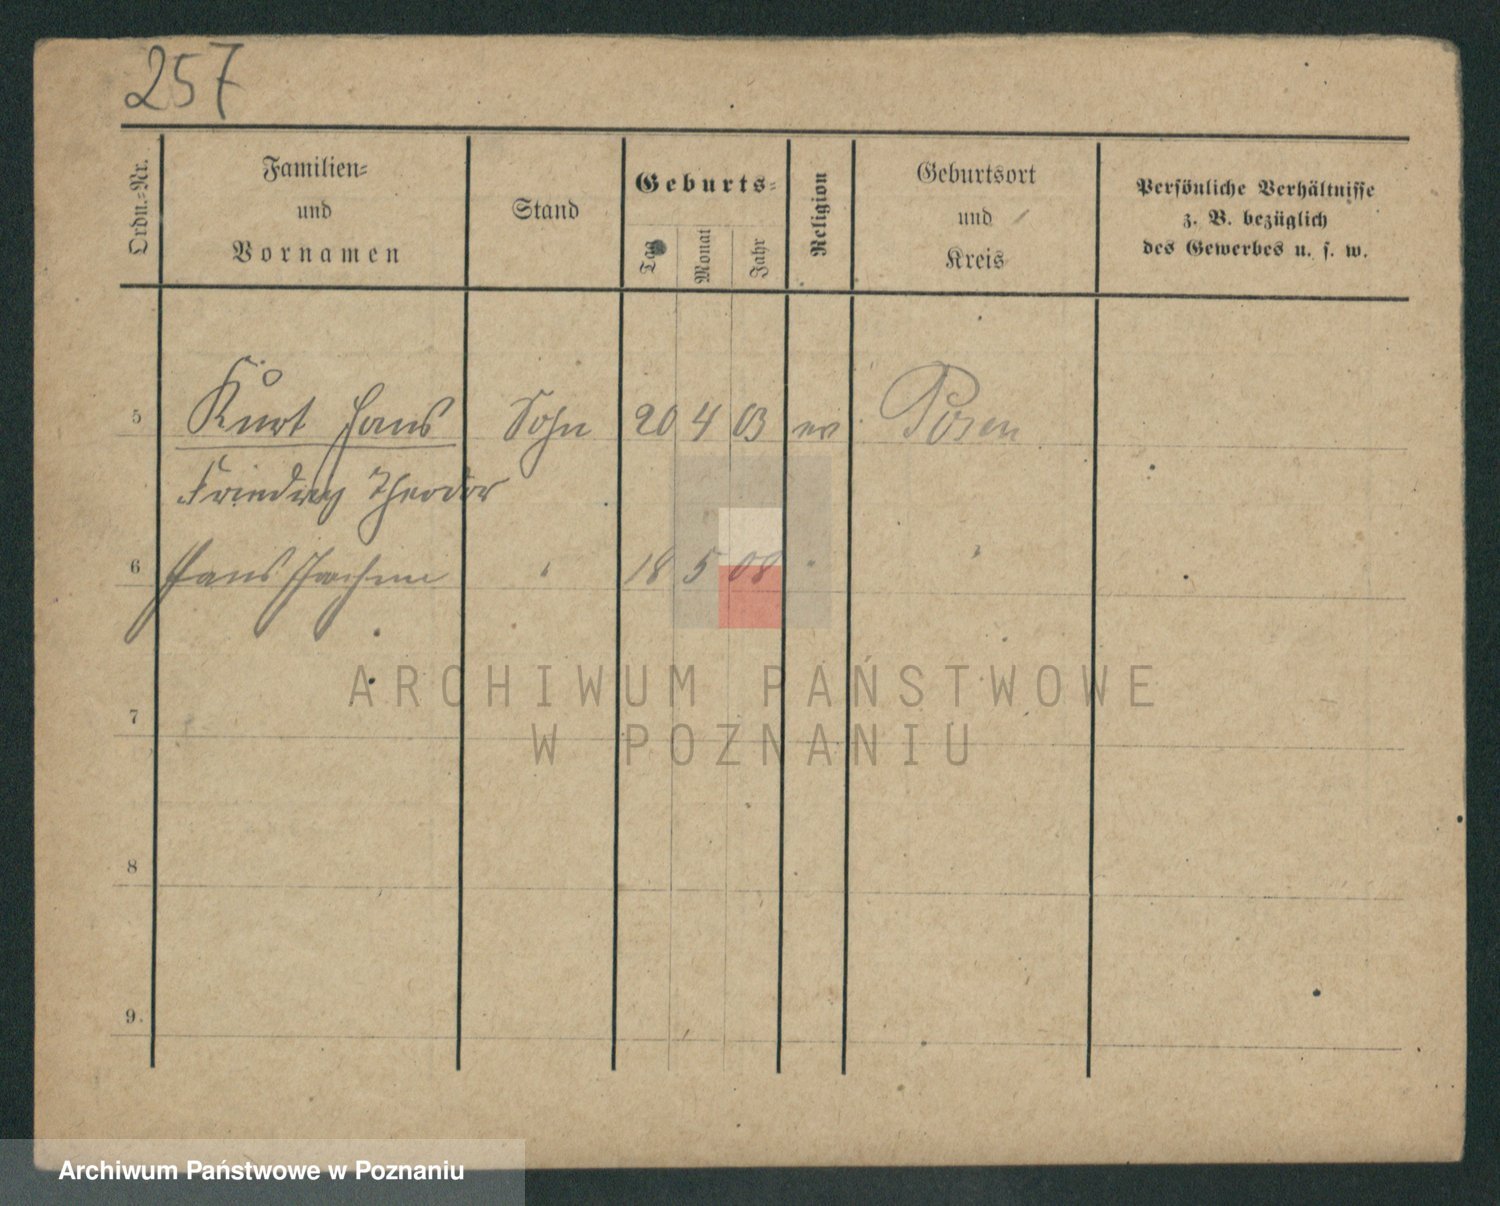 257
Ordn.-Nr.
Familien-
und
Vornamen
Stand
Geburts-
Tag
Monat
Jahr
Religion
Geburtsort
und
Kreis
Persönliche Verhältnisse
z. B. bezüglich
des Gewerbes u. s. w.
5 Kurt Hans Sohn 20 4 03 ev Posen
Friedrich Theodor
6 Hans Joachim " 18 5 08 " "
7
8
9.
ARCHIWUM PAŃSTWOWE
W POZNANIU
Archiwum Państwowe w Poznaniu